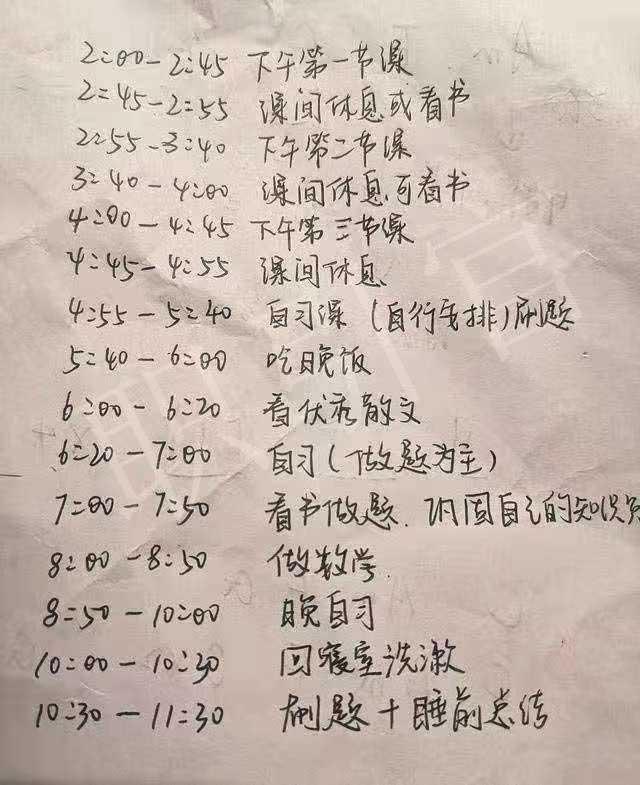 2:00-2:45 下午第一节课
2:45-2:55 课间休息或看书
2:55-3:40 下午第二节课
3:40-4:00 课间休息可看书
4:00-4:45 下午第三节课
4:45-4:55 课间休息
4:55-5:40 自习课(自行安排)刷题
5:40-6:00 吃晚饭
6:00-6:20 看优秀散文
6:20-7:00 自习(做题为主)
7:00-7:50 看书做题.巩固自己的知识
8:00-8:50 做数学
8:50-10:00 晚自习
10:00-10:30 回寝室洗漱
10:30-11:30 刷题+睡前总结